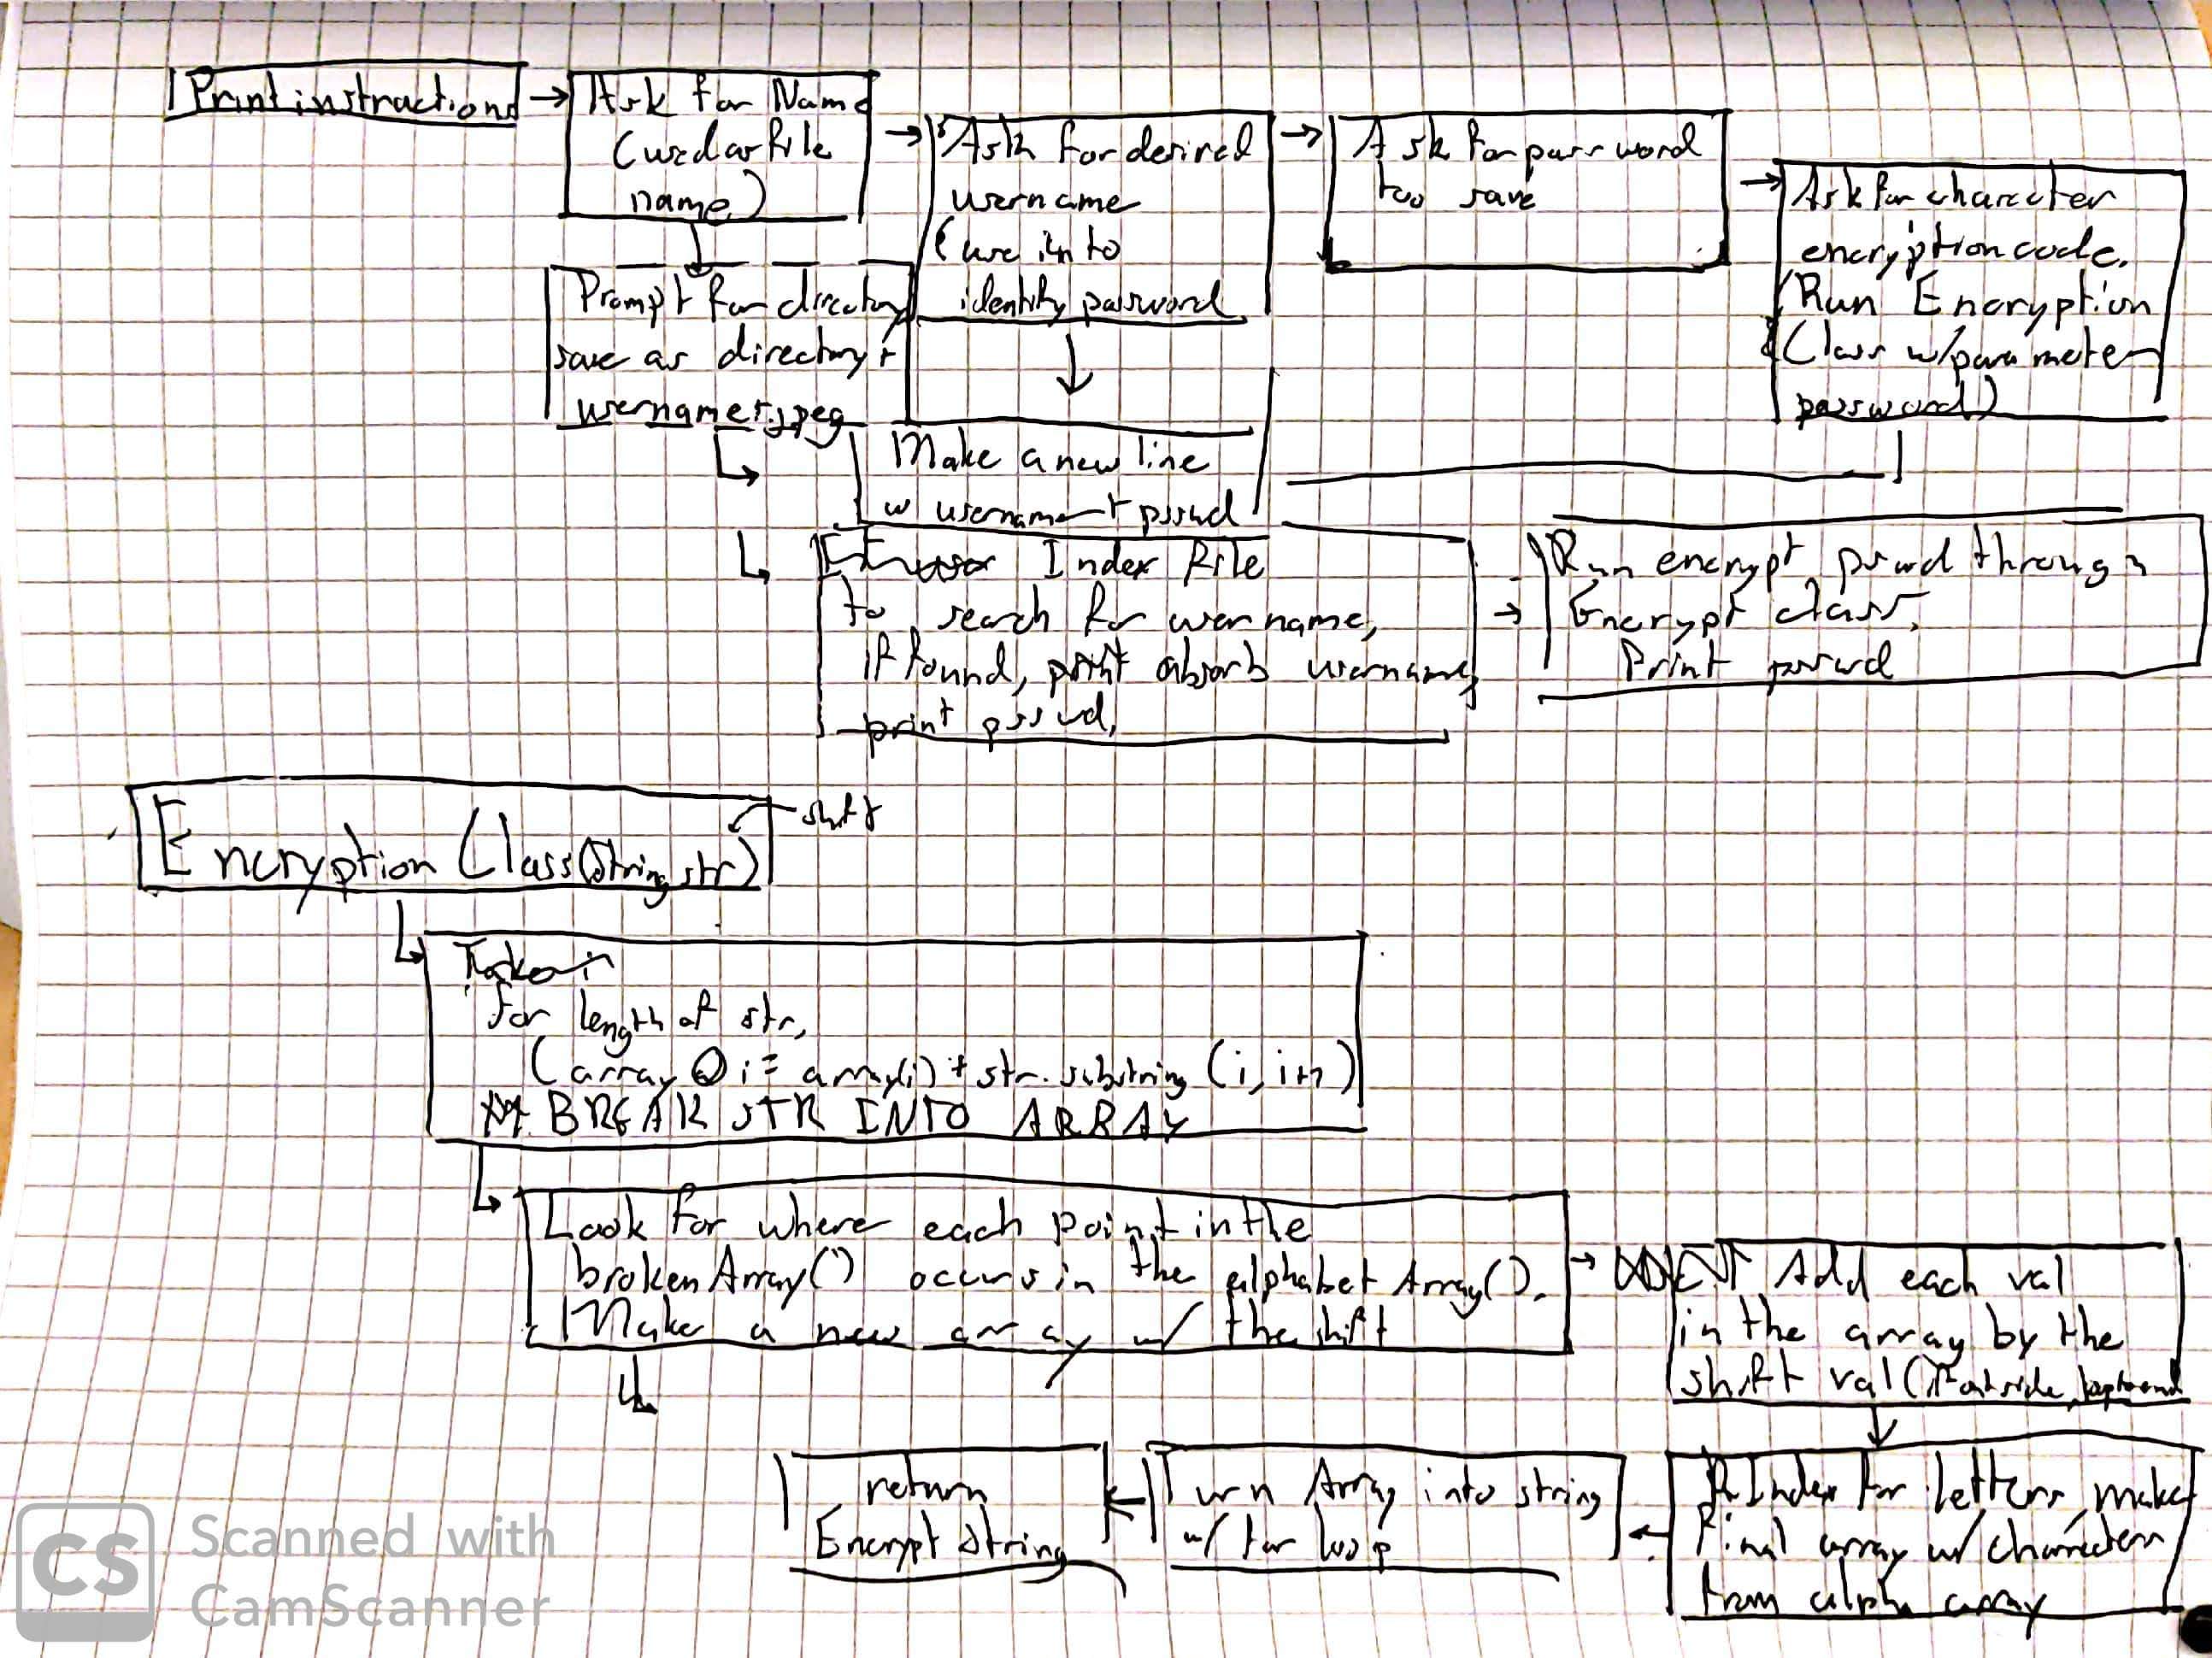 Print instractions
Ask for Name
(used as file
name)
Ask for desired
username
(use in to
identify password
Ask for password
too save
Ask for character
encryption code.
(Run Encryption
Class w/parameter
password)
Prompt for directory
save as directory +
username+.jpeg
Make a new line
w username + psswd
Index file
to search for username,
if found, absorb username,
print psswd,
Run encrypt psswd through
Encrypt class,
Print psswd
Encryption Class(String str)
shift
for length of str,
(array @ i = array(i) + str.substring (i, i+1)
BREAK STR INTO ARRAY
Look for where each point in the
brokenArray() occurs in the alphabet Array().
Make a new array w/ the shift
Add each val
in the array by the
shift val (if outside,
Index for letters, make
final array w/ characters
from alpha array
Turn Array into string
w/ for loop
return
Encrypt String
CS
Scanned with
CamScanner